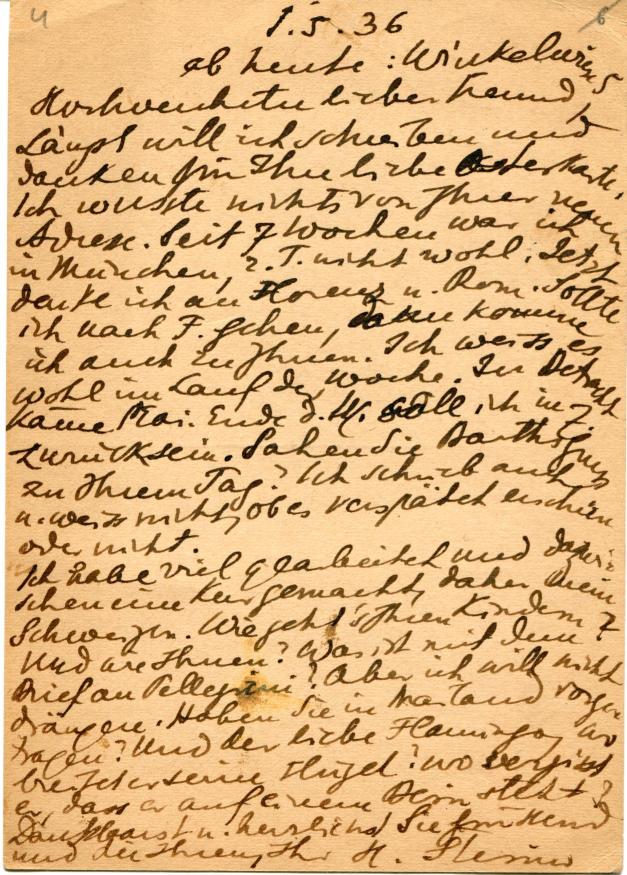 4 6
1.5.36
ab heute: Winkelwiese 5
Hochverehrter lieber Freund,
Längst will ich schreiben und
danken für Ihre liebe Osterkarte.
Ich wusste nichts von Ihrer neuen
Adresse. Seit 7 Wochen war ich
in München, z. T. nicht wohl. Jetzt
denke ich an Florenz u. Rom. Sollte
ich nach F. gehen, dann komme
ich auch zu Ihnen. Ich weiss es
wohl im Lauf der Woche. In Betracht
käme Mai. Ende d. M. soll ich in Z.
zurück sein. Sahen Sie Barths Gruss
zu Ihrem Tag? Ich schrieb auch
u. weiss nicht, ob es verspätet erschien
oder nicht.
Ich habe viel gearbeitet und dazwi-
schen eine Kur gemacht, daher mein
Schweigen. Wie geht's Ihren Kindern?
Und wie Ihnen? Was ist mit dem
Brief an Pellegrini? Aber ich will nicht
drängen. Haben Sie in Mailand vorge-
tragen? Und der liebe Flamingo, wo
breitet er seine Flügel? Wo vergisst
er, dass er auf einem Bein steht?
u. herzlichst Sie
und die Ihren, Ihr H.